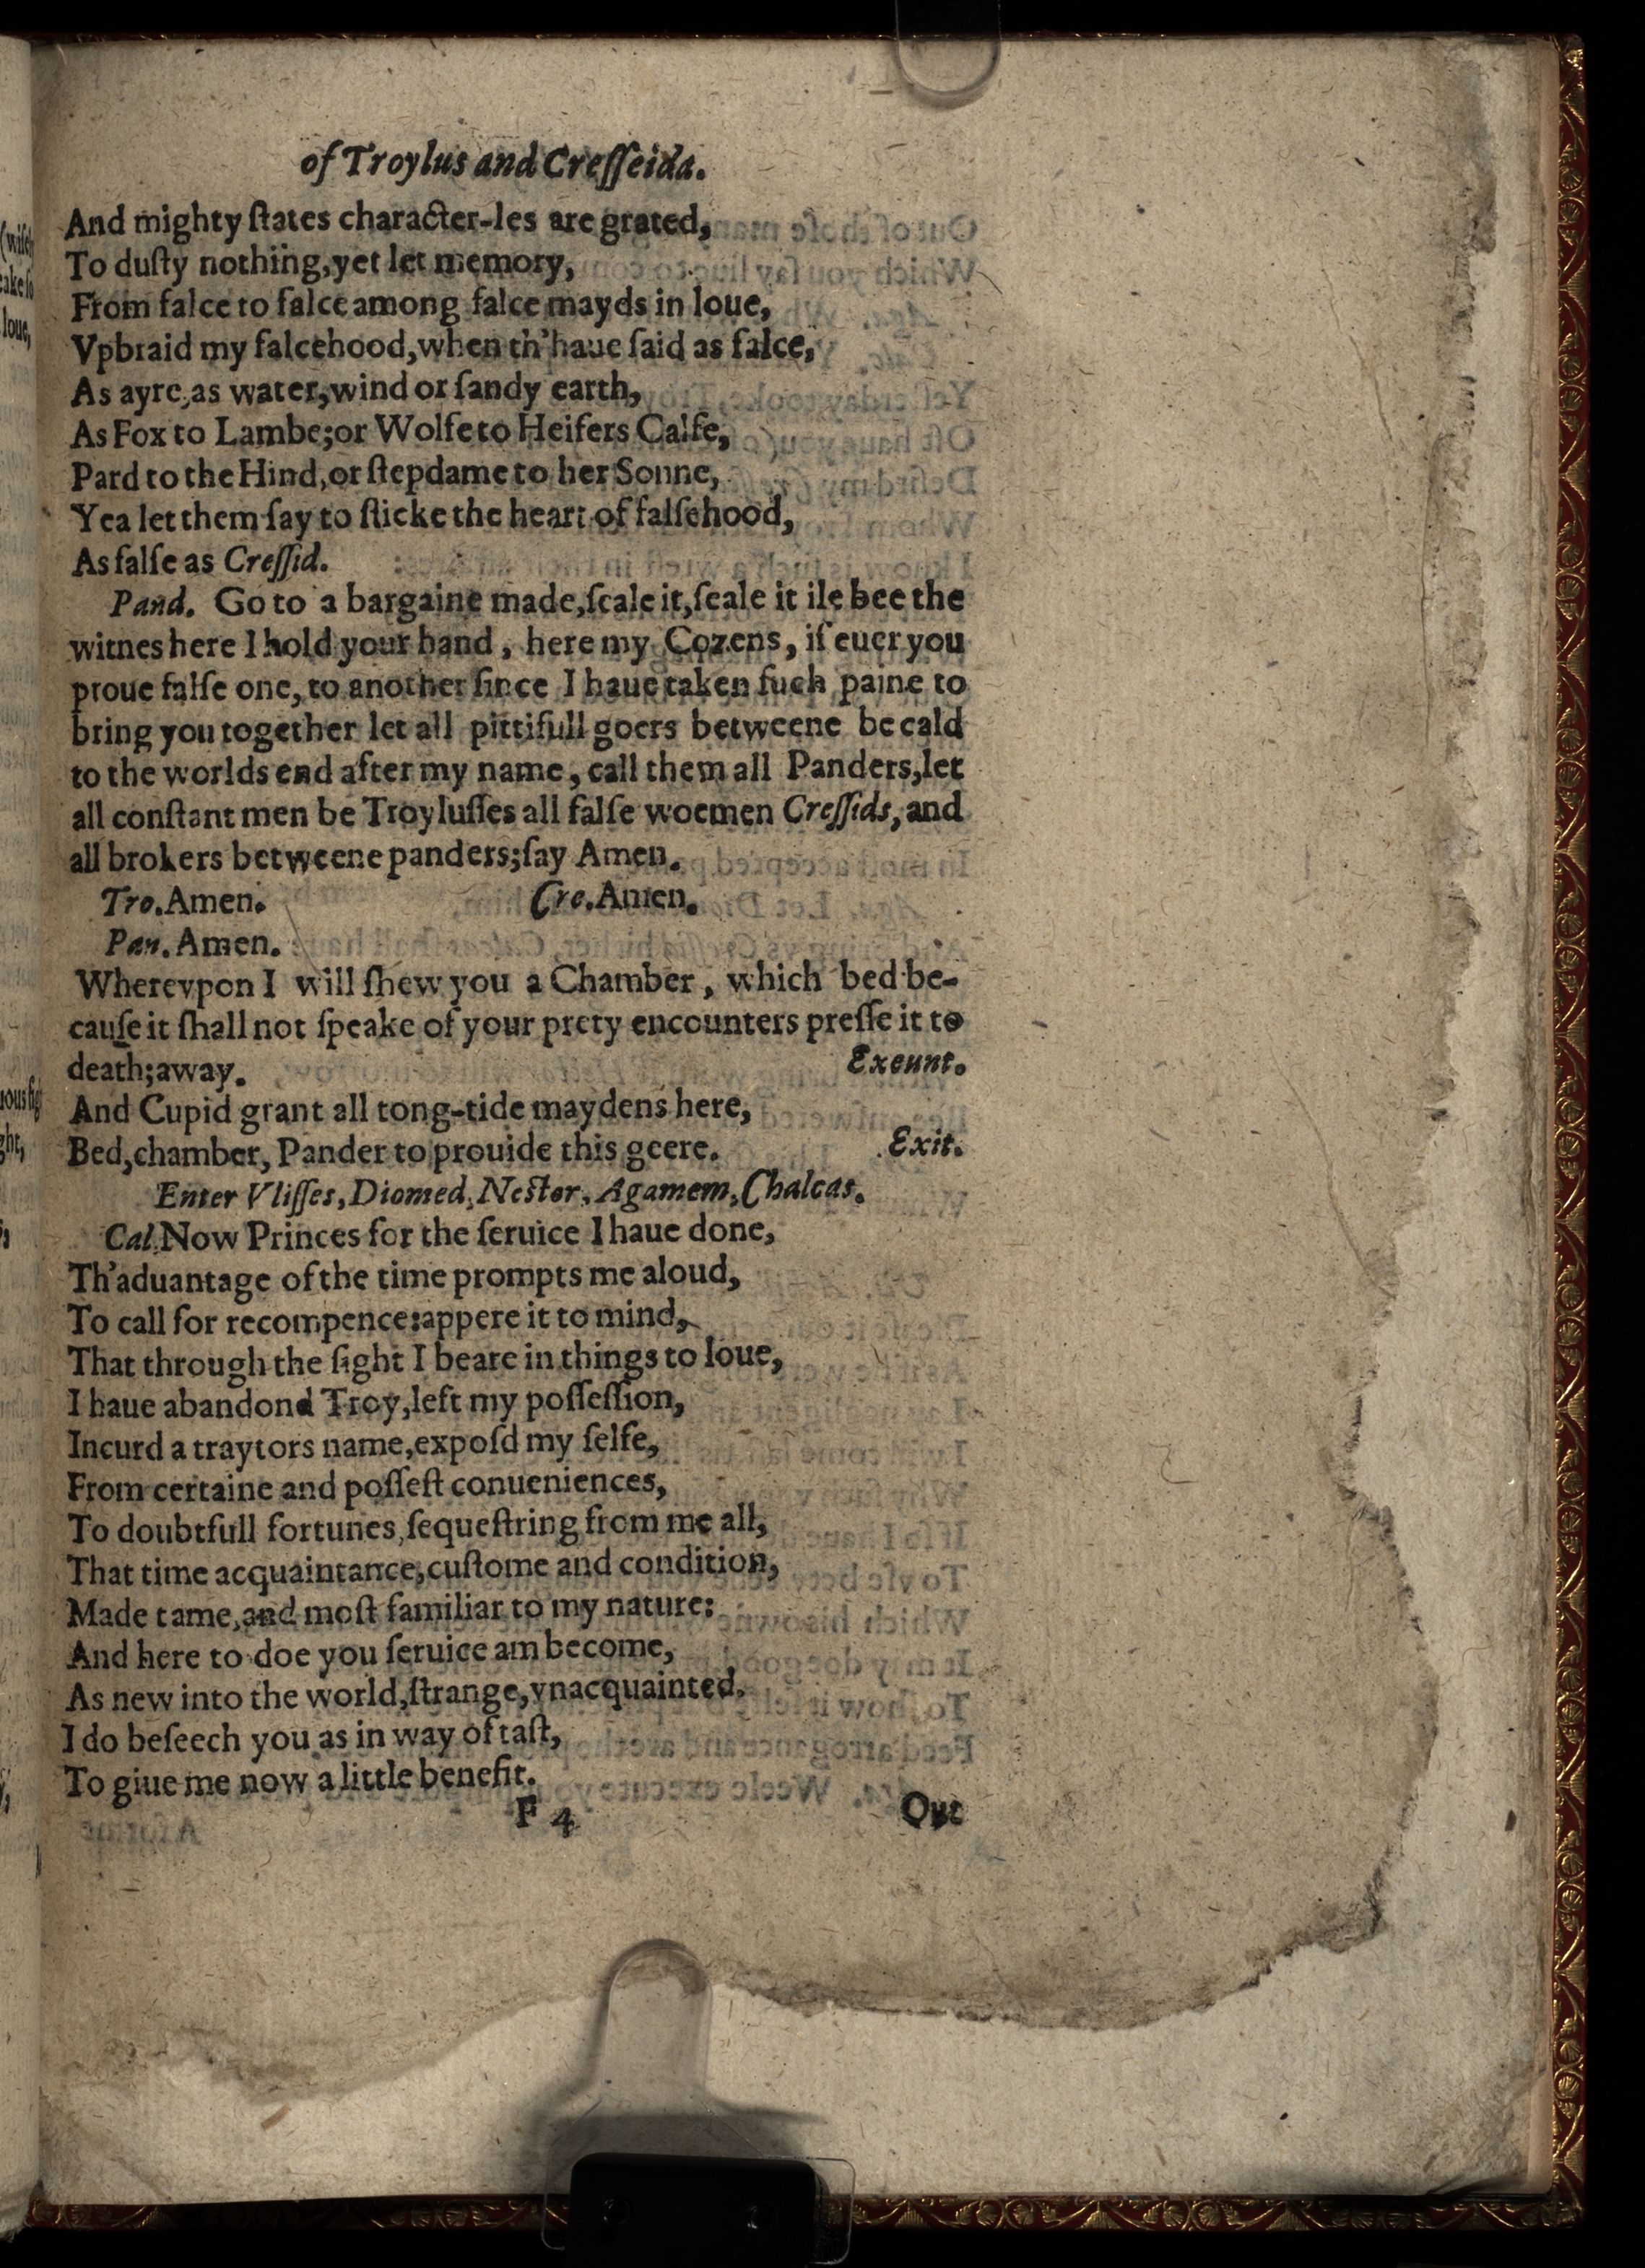 of Troylus and Creſſeida.
And mighty ſtates character-les are grated,
To duſty nothing,yet let memory,
From falce to falce among falce mayds in loue,
Vpbraid my falcehood,when th'haue ſaid as falce,
As ayre,as water,wind or ſandy earth,
As Fox to Lambe;or Wolfe to Heifers Calfe,
Pard to the Hind,or ſtepdame to her Sonne,
Yea let them ſay to ſticke the heart of falſehood,
As falſe as Creſſid.
Pand. Go to a bargaine made,ſeale it,ſeale it ile bee the
witnes here I hold your hand, here my Cozens, if euer you
proue falſe one, to another ſince I haue taken ſuch paine to
bring you together let all pittifull goers betweene be cald
to the worlds end after my name, call them all Panders,let
all conſtant men be Troyluſſes all falſe woemen Creſſids, and
all brokers betweene panders;ſay Amen.
Tro.Amen. Cre.Amen.
Pan. Amen.
Wherevpon I will ſhew you a Chamber, which bed be-
cauſe it ſhall not ſpeake of your prety encounters preſſe it to
death;away. Exeunt.
And Cupid grant all tong-tide maydens here,
Bed,chamber, Pander to prouide this geere. Exit.
Enter Vliſſes, Diomed, Neſtor, Agamem, Chalcas.
Cal.Now Princes for the ſeruice I haue done,
Th'aduantage of the time prompts me aloud,
To call for recompence:appere it to mind,
That through the ſight I beare in things to loue,
I haue abandond Troy,left my poſſeſſion,
Incurd a traytors name,expoſd my ſelfe,
From certaine and poſſeſt conueniences,
To doubtfull fortunes,ſequeſtring from me all,
That time acquaintance,cuſtome and condition,
Made tame,and moſt familiar to my nature:
And here to doe you ſeruice am become,
As new into the world,ſtrange,vnacquainted.
I do beſeech you as in way of taſt,
To giue me now a little benefit.
F 4 Out